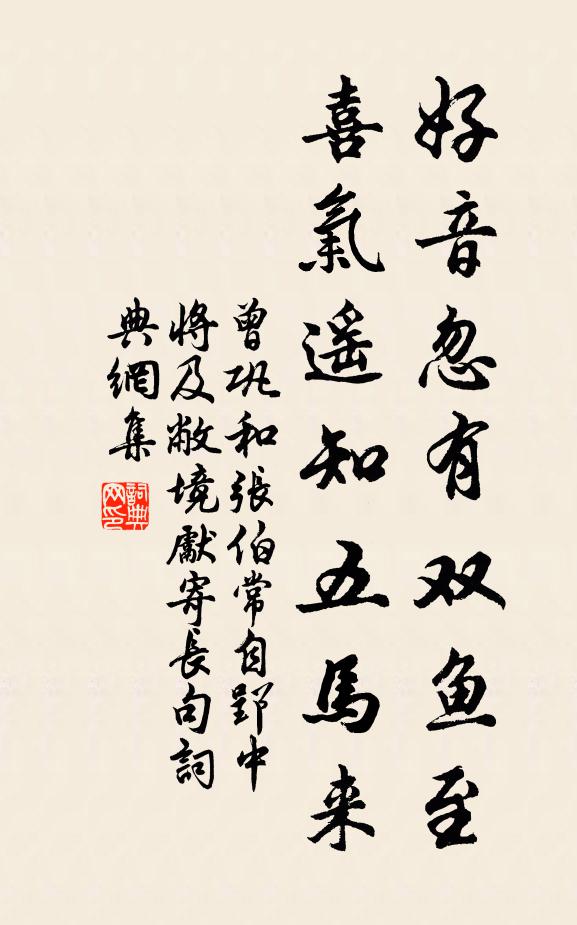 好音忽有双鱼至
喜氣遥知五馬来
曾巩和張伯常自郢中
將及敝境獻寄長句詞
典網集
詞典
网印